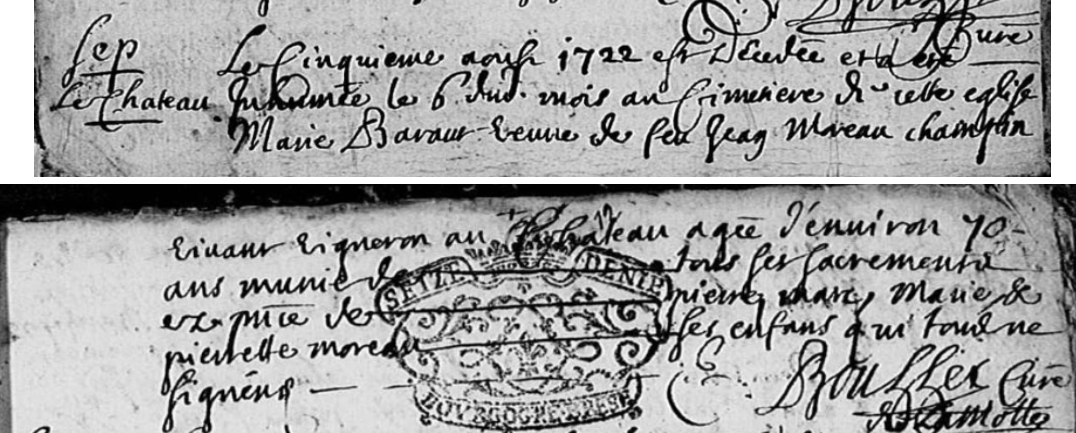 Curé
Sep Le Cinquieme aoust 1722 est Decedee et a eté
Le Chateau Inhumée le 6 dud. mois au Cimetiere de cette eglise
Marie Baraut veuve de feu Jean Moreau champlin
vivant vigneron au Chateau agée d'environ 70
ans munie de tous ses sacrements
ez pnce de pierre, marc, Marie &
pierrette moreau ses enfans qui tous ne
signens
SEIZE DENIE
BOURGOGNE BRESSE
Curé